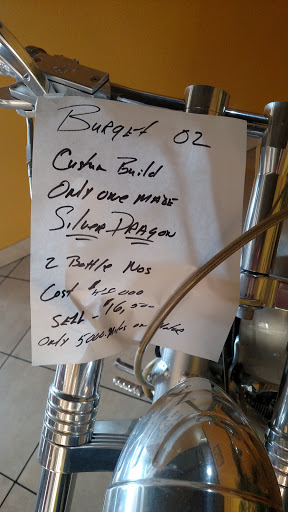 Burget 02
Custum Build
Only one made
Silver Dragon
2 Bottle Nos
Cost $
Sell - 16,500
Only 5000 miles on